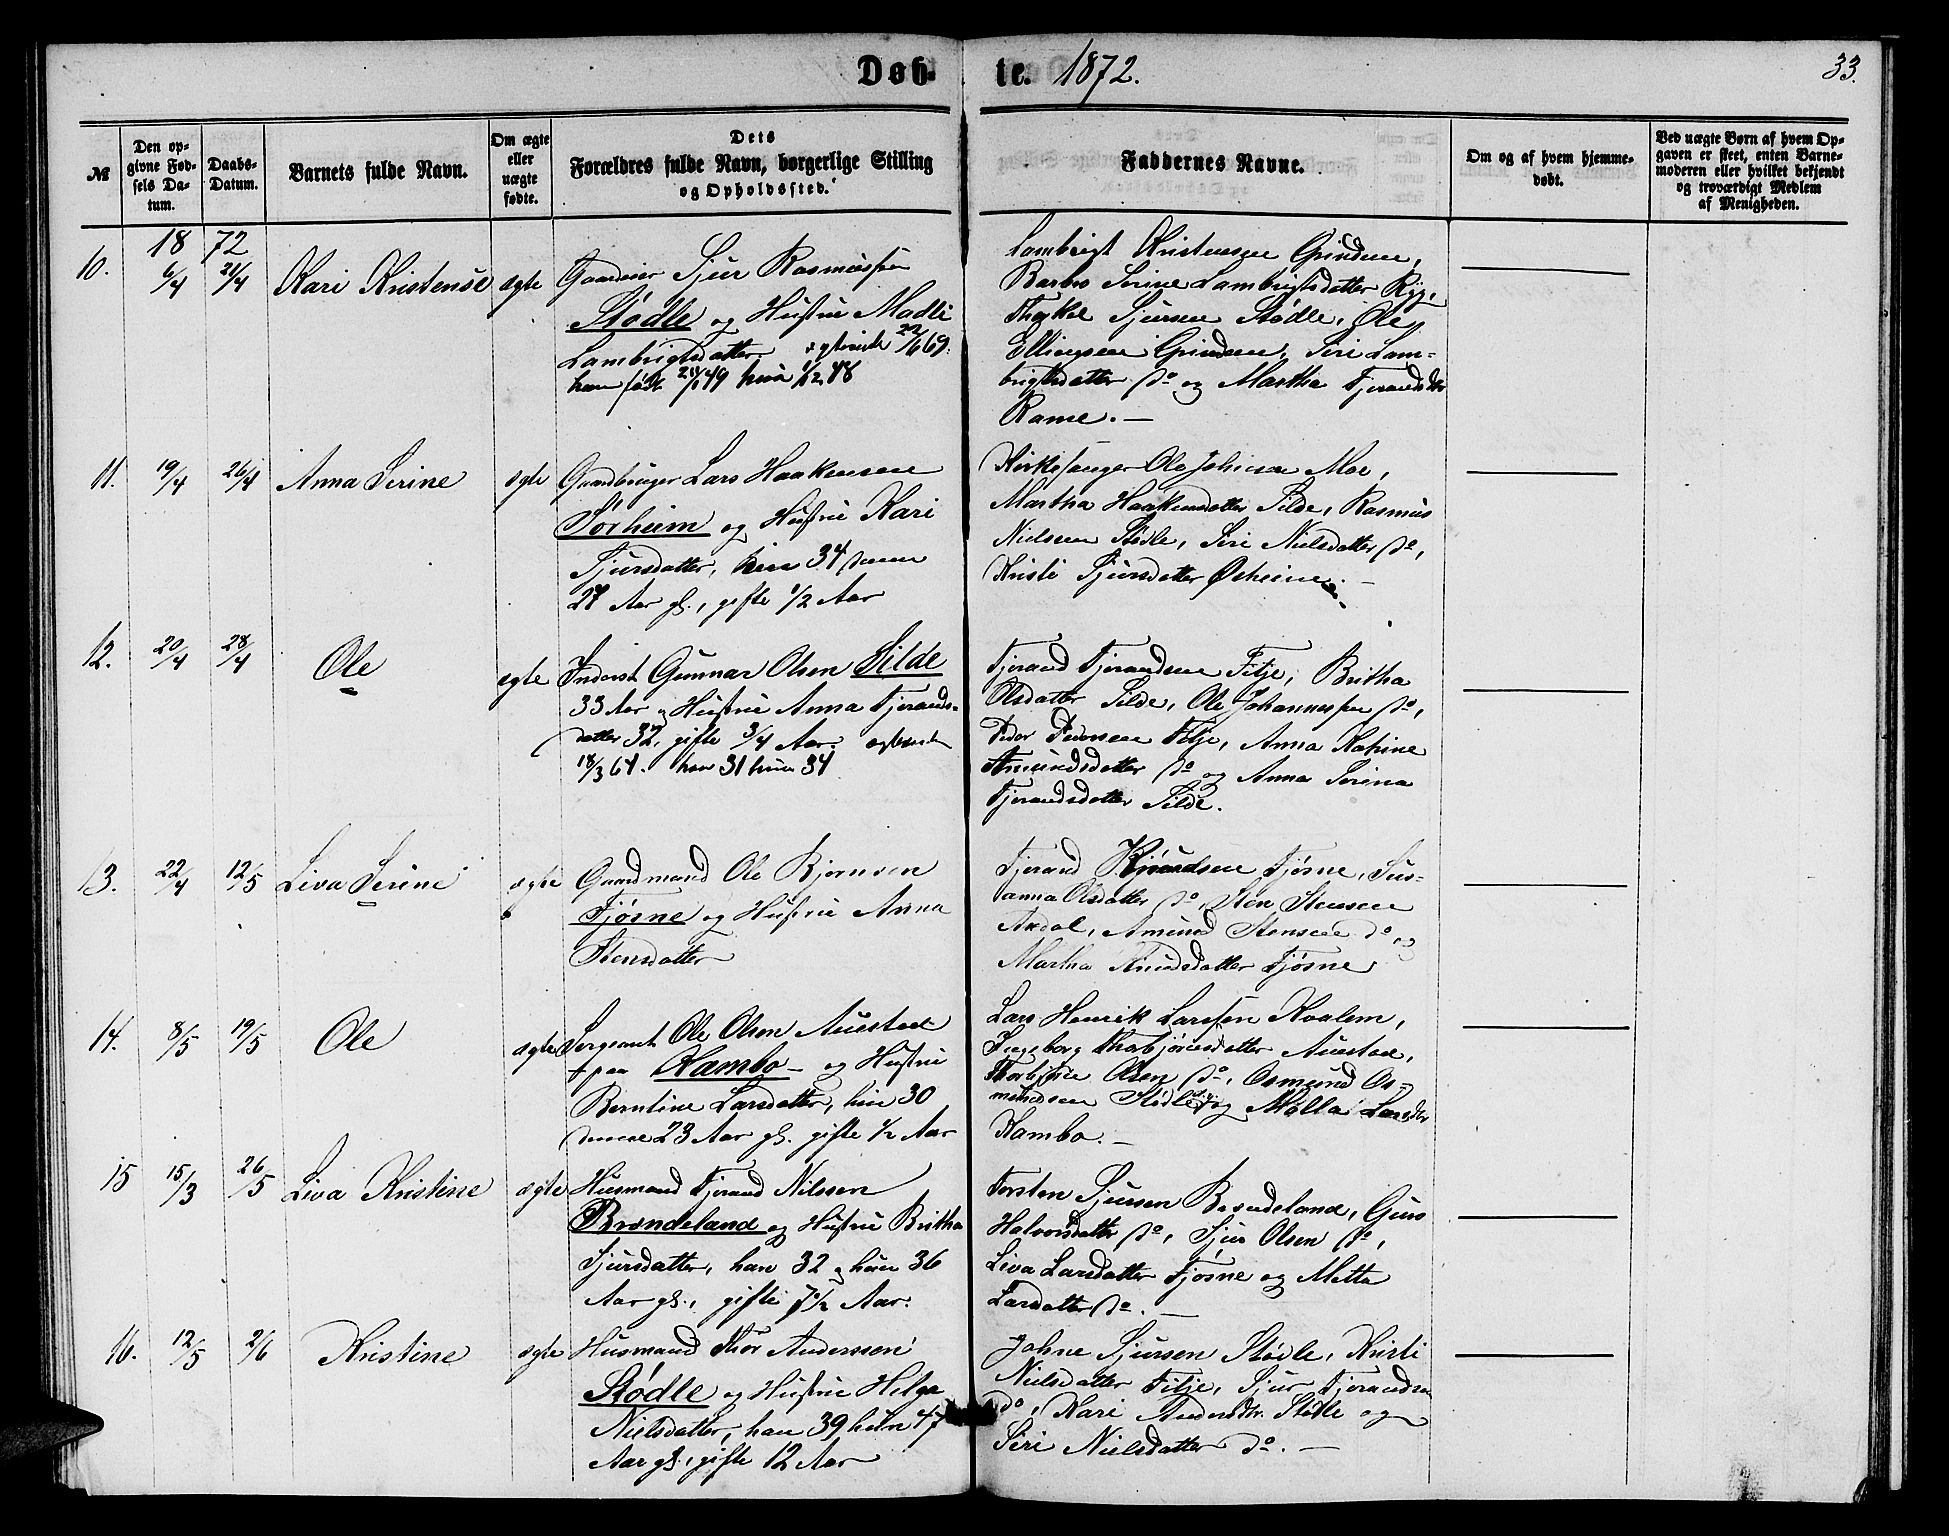 Døb-
te. 1872.
33.
№
Den op-
givne Fød-
sels Da-
tum.
Daabs-
Datum.
Barnets fulde Navn.
Om ægte
eller
uægte
fødte.
Dets
Forældres fulde Navn, borgerlige Stilling
og Opholdssted.
Faddernes Navne.
Om og af hvem hjemme-
døbt.
Ved uægte Børn af hvem Op-
gaven er skeet, enten Barne-
moderen eller hvilket bekjendt
og troværdigt Medlem
af Menigheden.
1872
10. 6/4 21/4 Kari Kristense ægte
Gaardeier Sjur Rasmussen
Stødle og Hustru Madli
Lambrigtsdatter. 22/6 69.
han født 49 hun 48
Lambrigt Kristensen Grindem,
Barbro Serine Lambrigtsdatter Ryg,
Thorkel Sjursen Stødle, Ole
Ellingsen Grindem, Siri Lam-
brigtsdatter do og Martha Tjerandsdtr
Rame. —
11. 19/4 26/4 Anna Serine ægte
Gaardbruger Lars Haakensen
Sørheim og Hustru Kari
Sjursdatter, han 34 denne
27 Aar gl., gifte 1/2 Aar
Kirkesanger Ole Johnsen Moe,
Martha Haakensdatter Silde, Rasmus
Nielsen Stødle, Siri Nielsdatter do,
Kristi Sjursdatter Østheim. —
12. 20/4 28/4 Ole ægte
Inderst Gunnar Olsen Silde
33 Aar og Hustru Anna Tjerands-
datter 32, gifte 3/4 Aar. ægteviet
18/3 64. han 31 hun 34
Tjerand Tjerandsen Fitje, Britha
Olsdatter Silde, Ole Johannessen do,
Peder Pedersen Fitje, Anna Katrine
Amundsdatter do og Anna Serina
Tjerandsdatter Silde.
13. 22/4 12/5 Liva Serine ægte
Gaardmand Ole Bjørnsen
Fjøsne og Hustru Anna
Stensdatter
Tjerand Fjøsne, Sus-
anna Olsdatter do, Sten Stensen
Axdal, Amund Stensen do, og
Martha Knudsdatter Fjøsne
14. 8/5 19/5 Ole ægte
Sergeant Ole Olsen Austad
paa Kambo — og Hustru
Berntine Larsdatter, hin 30
denne 23 Aar gl. gifte 1/2 Aar
Lars Henrik Larssen Kvalem,
Ingeborg Thorbjørnsdatter Austad,
Thorbjørn Olsen do, Osmund Os-
mundsen Stødle og Malla Larsdtr
Kambo. —
15 15/3 26/5 Liva Kristine ægte
Husmand Tjerand Nilssen
Brøndeland og Hustru Britha
Sjursdatter, han 32 og hun 36
Aar gl., gifte 7 1/2 Aar.
Torsten Sjursen Brøndeland, Guro
Halvorsdatter do, Sjur Olsen do,
Liva Larsdatter Fjøsne og Metta
Larsdatter do. —
16. 12/5 2/6 Kristine ægte
Husmand Thor Anderssen
Stødle og Hustru Helga
Nielsdatter, han 39 hun 47
Aar gl., gifte 12 Aar
Johne Sjursen Stødle, Kristi
Nielsdatter Fitje, Sjur Tjerandsen
do, Kari Andersdtr. Stødle og
Siri Nielsdatter do. —